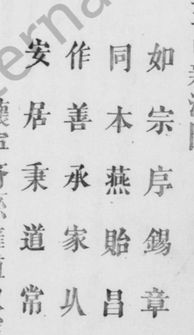 如宗序錫章
同本燕貽昌
作善承家乆
安居秉道常